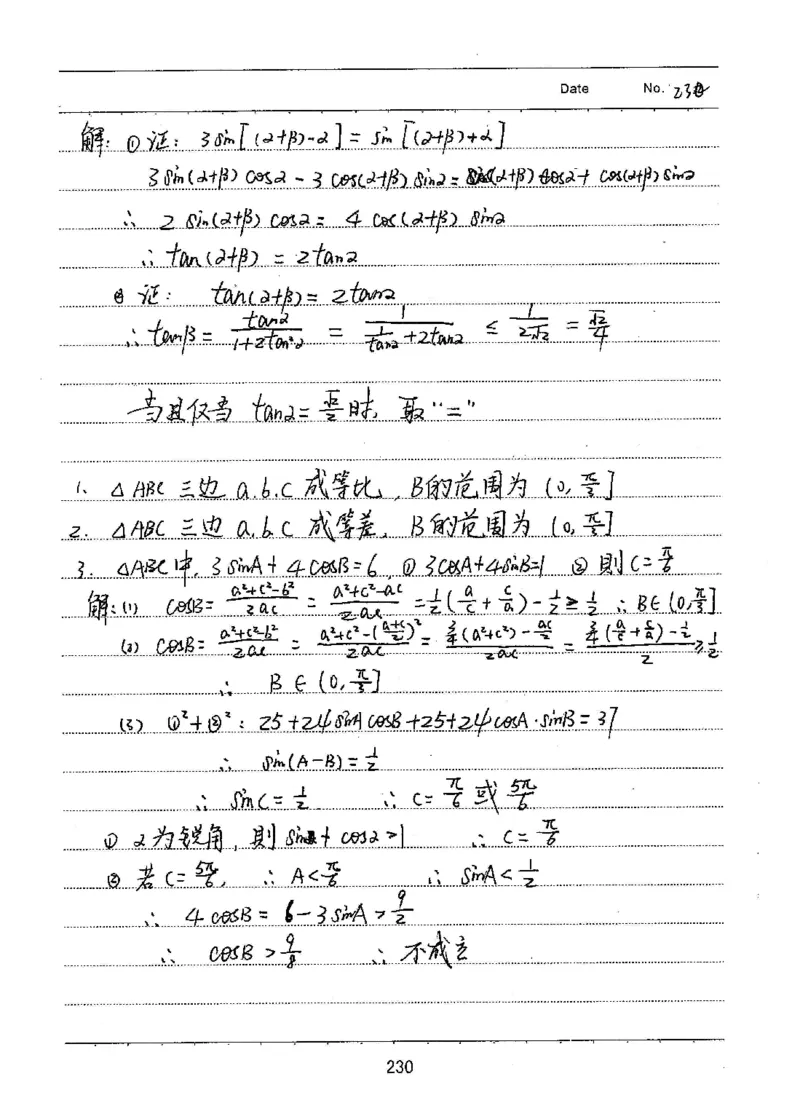 Date No. 230
解: ① 证: 3sin[(α+β)-α] = sin[(α+β)+α]
3sin(α+β)cosα - 3cos(α+β)sinα = sin(α+β)cosα + cos(α+β)sinα
∴ 2sin(α+β)cosα = 4cos(α+β)sinα
∴ tan(α+β) = 2tanα
② 证: tan(α+β) = 2tanα
∴ tanβ = tanα/(1+2tan²α) = 1/(1/tanα + 2tanα) ≤ 1/(2√2) = √2/4
当且仅当 tanα = √2/2 时, 取 "="
1. △ABC 三边 a.b.c 成等比, B的范围为 (0, π/3]
2. △ABC 三边 a.b.c 成等差, B的范围为 (0, π/3]
3. △ABC中, 3sinA + 4cosB = 6, ① 3cosA + 4sinB = 1 ② 則 C = π/6
解: (1) cosB = (a²+c²-b²)/2ac = (a²+c²-ac)/2ac = 1/2(a/c + c/a) - 1/2 ≥ 1/2 ∴ B∈(0, π/3]
(2) cosB = (a²+c²-b²)/2ac = (a²+c²-((a+c)/2)²)/2ac = (3/4(a²+c²) - ac/2)/2ac = (3/4(a/c + c/a) - 1/2)/2 ≥ 1/2
∴ B ∈ (0, π/3]
(3) ①²+②²: 25+24sinAcosB+25+24cosA·sinB = 37
∴ sin(A-B) = 1/2
∴ sinC = 1/2 ∴ C = π/6 或 5π/6
① α为锐角, 則 sinα + cosα > 1 ∴ C = π/6
② 若 C = 5π/6, ∴ A < π/6 ∴ sinA < 1/2
∴ 4cosB = 6 - 3sinA > 9/2
∴ cosB > 9/8 ∴ 不成立
230